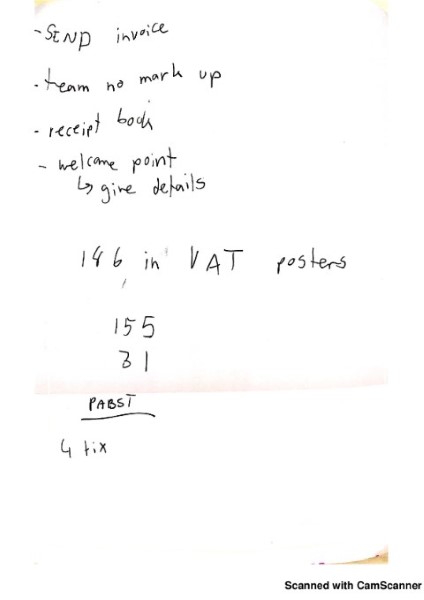 - SEND invoice
- team no mark up
- receipt book
- welcome point
↳ give details
146 in VAT posters
155
31
PABST
4 tix
Scanned with CamScanner